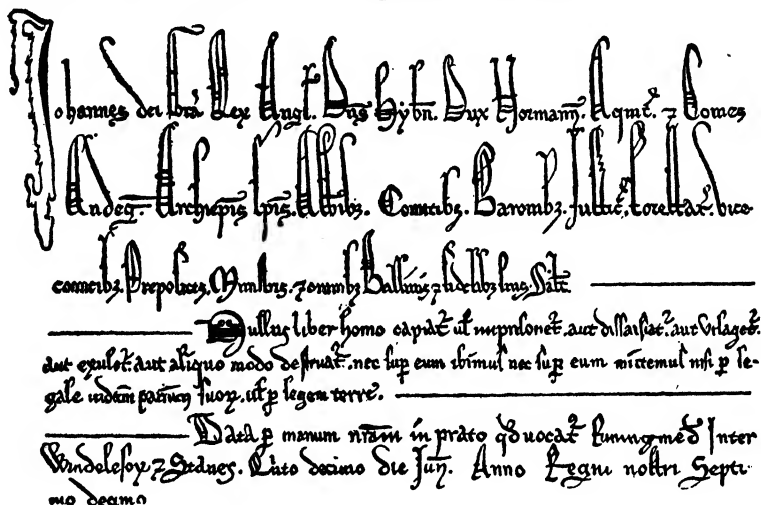 Johannes dei Gra Rex Angl. Dns Hybn. Dux Normann. Aqnit. ⁊ Comes
Andeg. Archiepis Epis. Abbibz. Comitibz. Baronibz. Justic. forestar. vice
comitibz. Prepositis. Ministris. ⁊ omnibz Ballivis ⁊ fidelibz suis. Salt.
Nullus liber homo capiat. ul inprisonet. aut dissaisiat. aut Utlaget.
aut exulet. aut aliquo modo destruat. nec sup eum ibimus nec sup eum mittemus nisi p le-
gale iudim parium suoꝝ. ul p legem terre.
Data p manum nram in prato qd uocat Runingmed Inter
Windelesoꝝ ⁊ Stanes. Quto decimo die Jun. Anno Regni nostri Septi
mo decimo